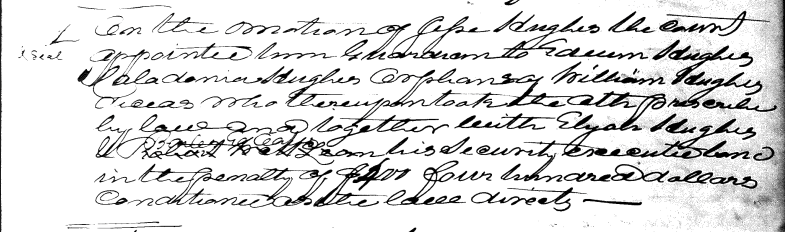 On the motion of Jesse Hughes the court
& Seal
appointed him Guardian to Edwin Hughes
Caladonia Hughes Orphans of William Hughes
Deceas who thereupon took the Oath prescribe
by law and together with Elijah Hughes
& his Security executed bond
in the penalty of $400 four hundred dollars
Conditioned as the law directs —